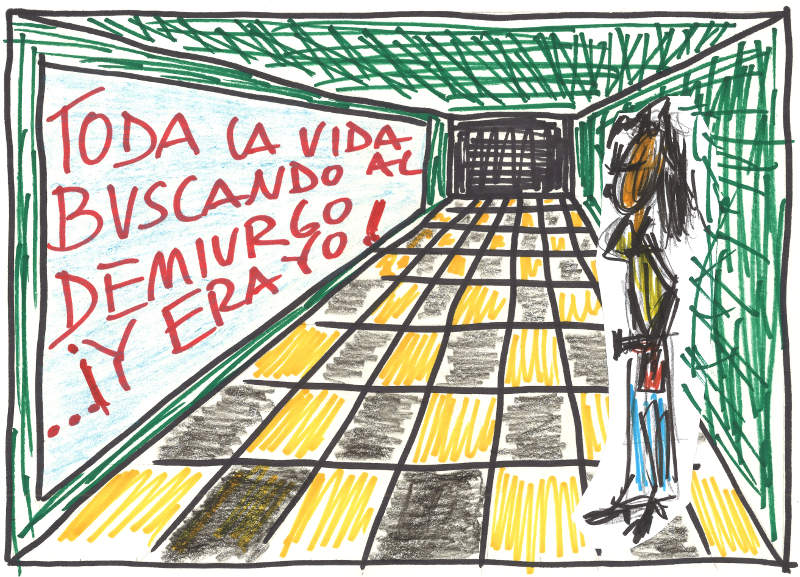 TODA LA VIDA
BUSCANDO AL
DEMIURGO
...¡Y ERA YO!